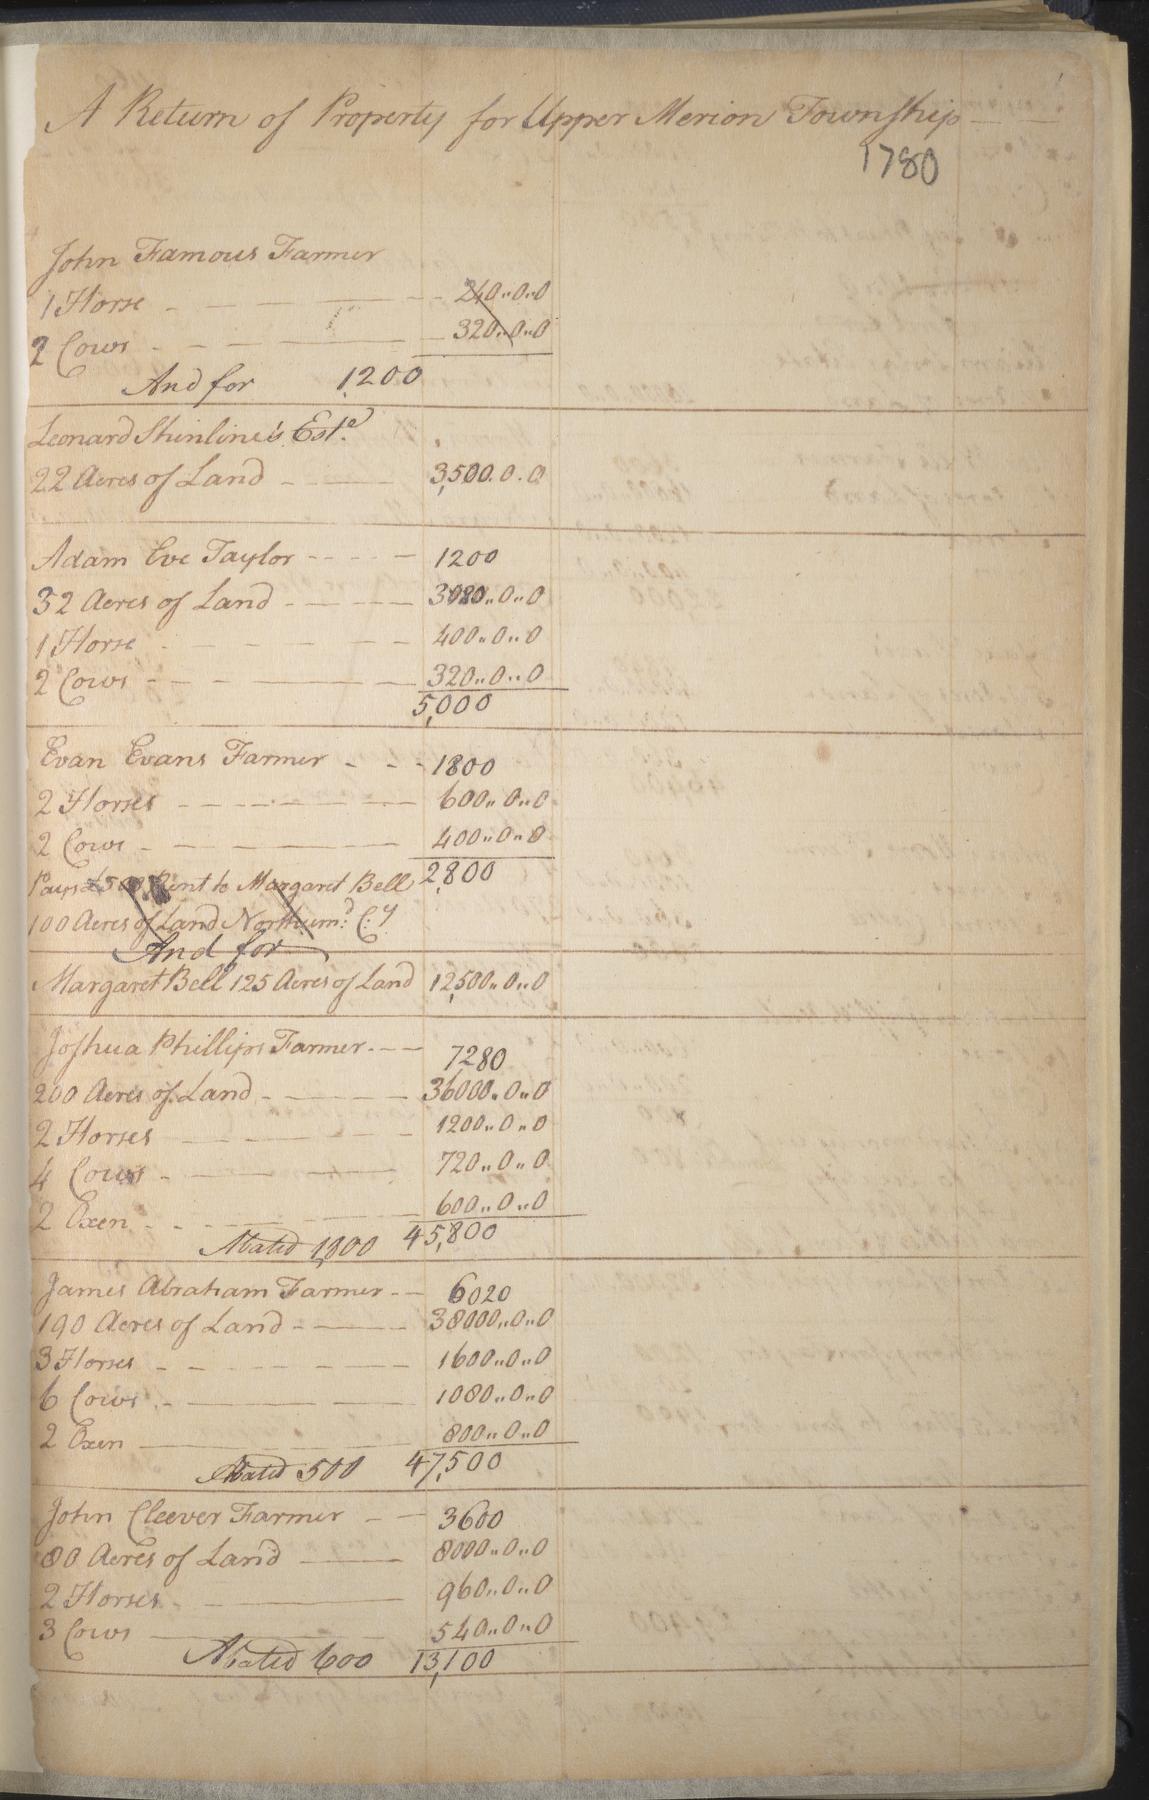 A Return of Property for Upper Merion Township
1780
John Famous Farmer
1 Horse 240..0..0
2 Cows 320..0..0
And for 1,200
Leonard Shinline's Este
22 Acres of Land 3,500.0.0
Adam Eve Taylor 1200
32 Acres of Land 3080..0..0
1 Horse 400..0..0
2 Cows 320..0..0
5,000
Evan Evans Farmer 1800
2 Horses 600..0..0
2 Cows 400..0..0
Pays £500 Rent to Margaret Bell 2,800
100 Acres of Land Northumd. C:y
And for
Margaret Bell 125 Acres of Land 12,500..0..0
Joshua Phillips Farmer 7280
200 Acres of Land 36000..0..0
2 Horses 1200..0..0
4 Cows 720..0..0
2 Oxen 600..0..0
Abated 1,800 45,800
James Abraham Farmer 6020
190 Acres of Land 38000..0..0
3 Horses 1600..0..0
6 Cows 1080..0..0
2 Oxen 800..0..0
Abated 500 47,500
John Cleever Farmer 3600
80 Acres of Land 8000..0..0
2 Horses 960..0..0
3 Cows 540..0..0
Abated 600 13,100